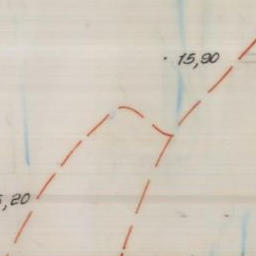 15,90
5,20